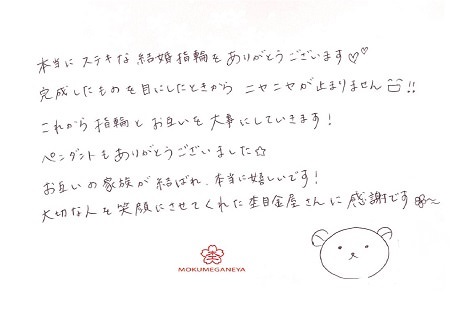 本当にステキな結婚指輪をありがとうございます♡♡
完成したものを目にしたときからニヤニヤが止まりません!!
これから指輪とお互いを大事にしていきます!
ペンダントもありがとうございました☆
お互いの家族が結ばれ、本当に嬉しいです!
大切な人を笑顔にさせてくれた杢目金屋さんに感謝です
MOKUMEGANEYA